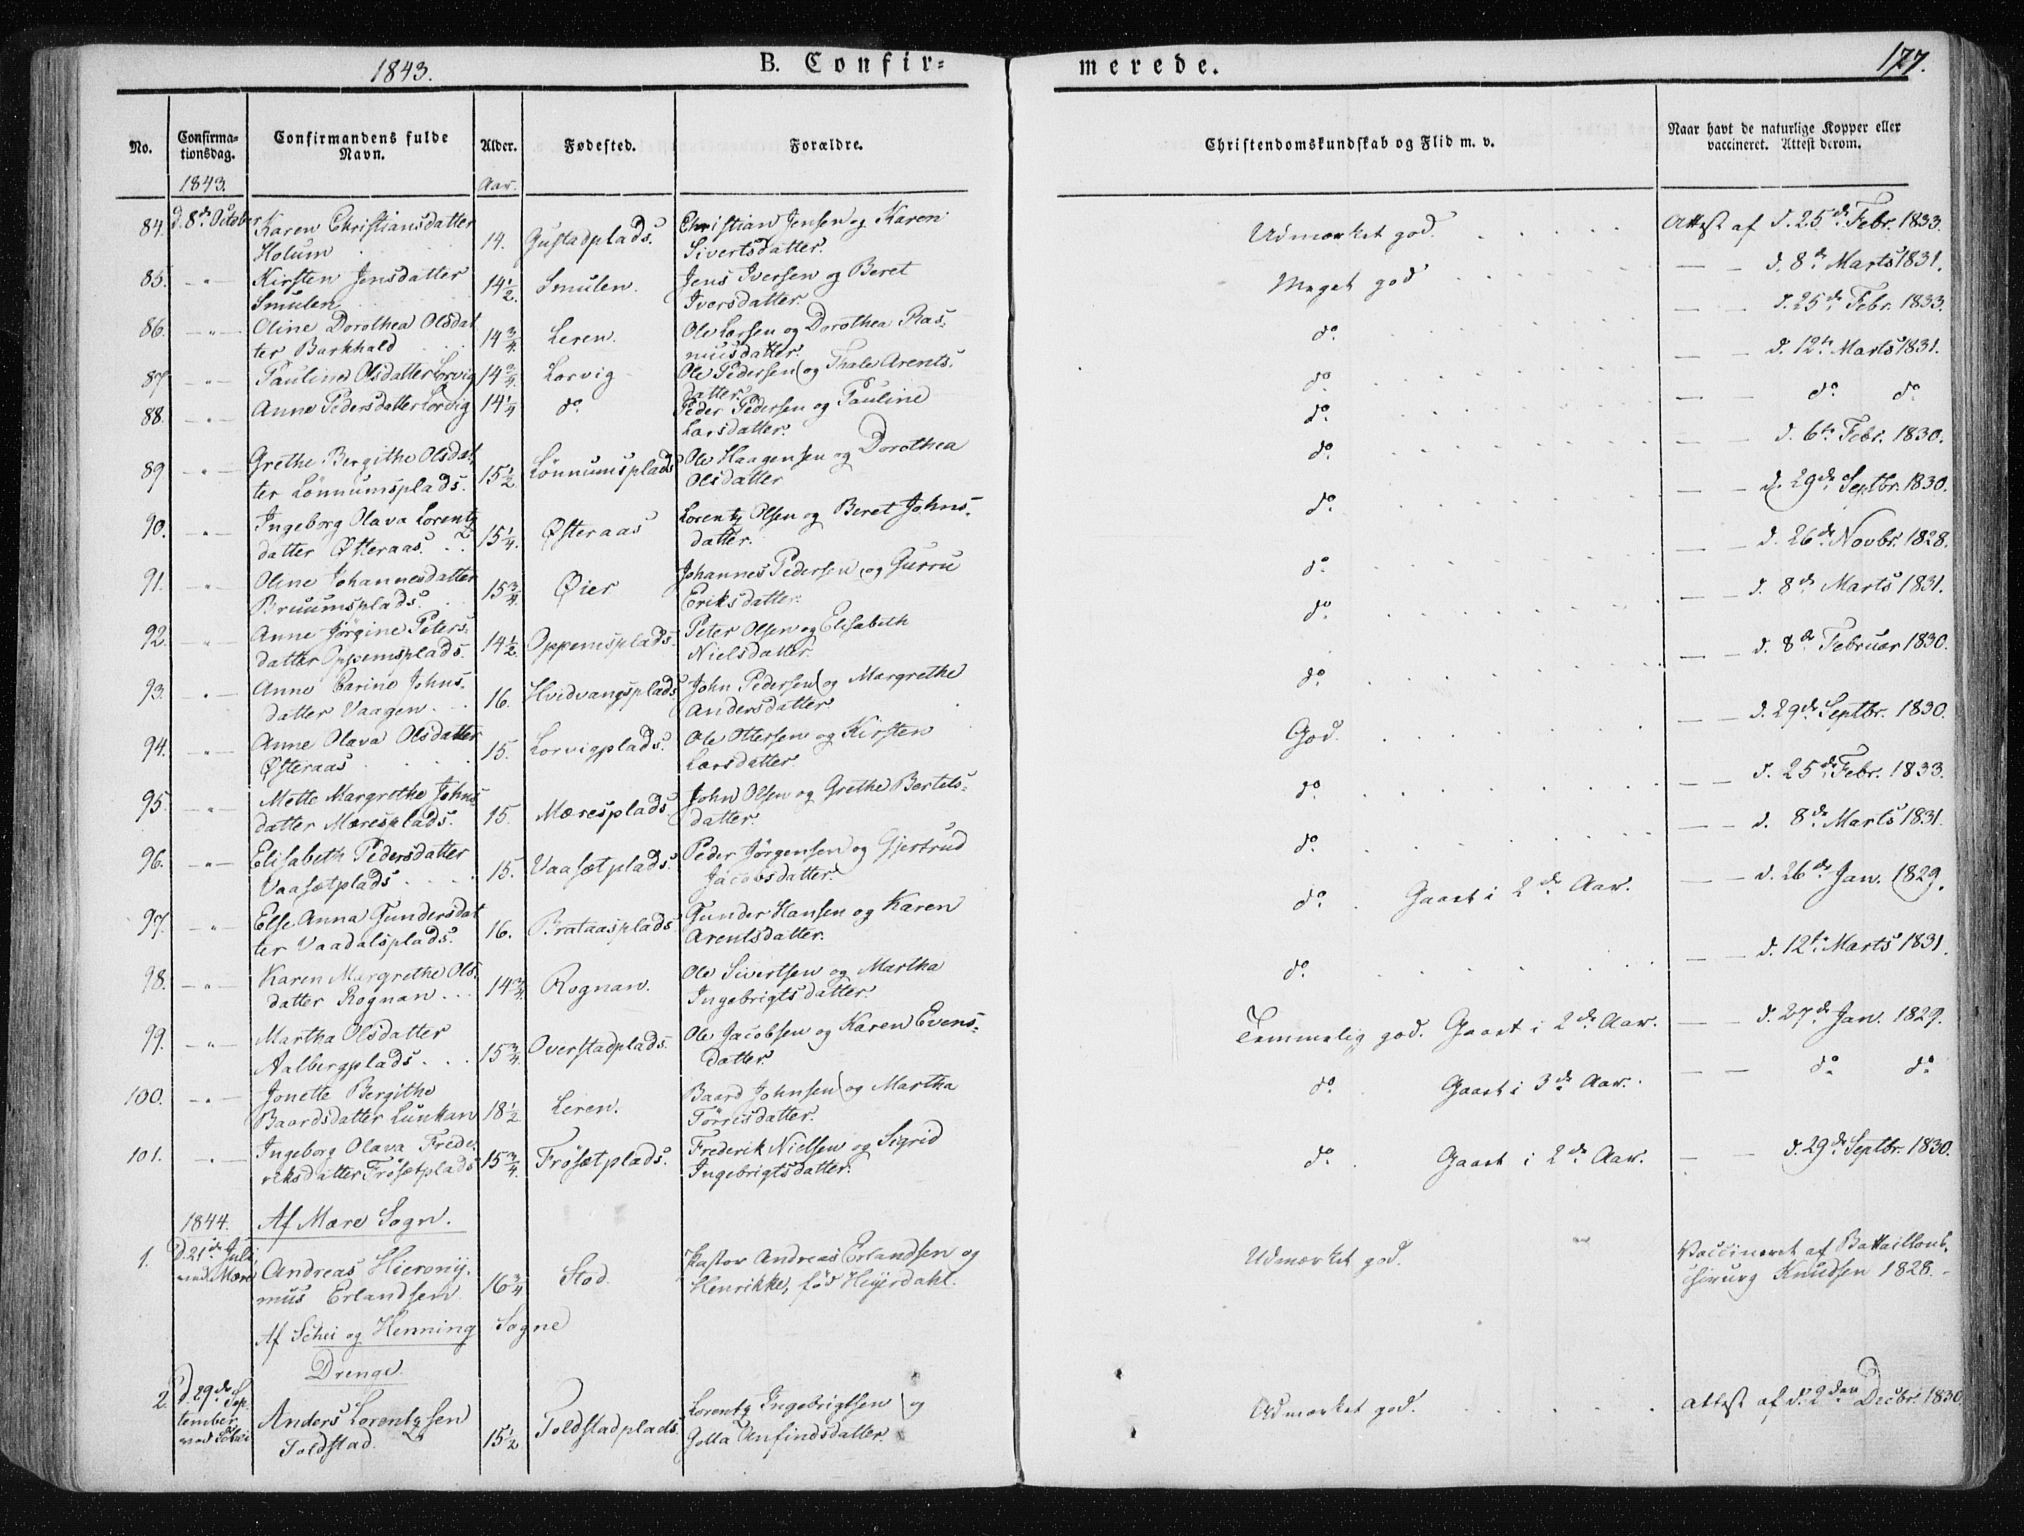 1843. B. Confir= merede. 177.
No. Confirma-tionsdag. Confirmandens fulde Navn. Alder. Fødested. Forældre. Christendomskundskab og Flid m. v. Naar havt de naturlige Kopper eller vaccineret. Attest derom.
1843. Aar.
84. d. 8de October Karen Christiansdatter Holum 14. Gustadplads. Christian Jensen og Karen Sivertsdatter. Udmærket god. Attest af d. 25de Febr. 1833.
85. -"- Kirsten Jensdatter Smulen 14½. Smulen. Jens Iversen og Beret Iversdatter. Meget god — — d. 8de Marts 1831.
86. -"- Oline Dorothea Olsdatter Barkhald 14¾. Leren. Ole Larsen og Dorothea Rasmusdatter. do. — — d. 25de Febr. 1833.
87. -"- Pauline Olsdatter Lorvig 14¾. Lorvig Ole Pedersen og Thale Arentsdatter. do. — — d. 12te Marts 1831.
88. -"- Anne Pedersdatter Lorvig 14¼ do. Peder Pedersen og Pauline Larsdatter. do. — — do. do.
89. -"- Grethe Bergithe Olsdatter Lønnumsplads. 15½. Lønnumsplads Ole Haagensen og Dorothea Olsdatter do. — — d. 6te Febr. 1830.
90. -"- Ingeborg Olava Lorentzdatter Østeraas. 15¼. Østeraas Lorentz Olsen og Beret Johnsdatter. do. — — d. 29de Septbr. 1830.
91. -"- Oline Johannesdatter Bruumsplads. 15¾. Øier Johannes Pedersen og Gurru Eriksdatter. do. — — d. 26de Novbr. 1828.
92. -"- Anne Jørgine Petersdatter Oppemsplads. 14½. Oppemsplads. Peter Olsen og Elisabeth Nielsdatter. do. — — d. 8de Marts 1831.
93. -"- Anne Carine Johnsdatter Vaagen. 16. Hvidvangsplads John Pedersen og Margrethe Andersdatter. do. — — d. 8de Februar 1830.
94. -"- Anne Olava Olsdatter Østeraas 15. Lorvigplads. Ole Ottersen og Kirsten Larsdatter. God. — — d. 29de Septbr. 1830.
95. -"- Mette Margrethe Johnsdatter Mæresplads. 15. Mæresplads. John Olsen og Grethe Bertelsdatter. do. — — d. 25de Febr. 1833.
96. -"- Elisabeth Pedersdatter Vaasetplads. 15. Vaasetplads. Peder Jørgensen og Gjertrud Jacobsdatter. do. — — d. 8de Marts 1831.
97. -"- Else Anna Gundersdatter Vaadalsplads. 16. Brataasplads Gunder Hansen og Karen Arentsdatter. do. Gaaet i 2de Aar. — — d. 26de Jan. 1829.
98. -"- Karen Margrethe Olsdatter Rognan. 14¾. Rognan. Ole Sivertsen og Martha Ingebrigtsdatter. do. — — d. 12te Marts 1831.
99. -"- Martha Olsdatter Aalbergplads. 15¾. Overstadplads. Ole Jacobsen og Karen Evensdatter. Temmelig god. Gaaet i 2de Aar. — — d. 27de Jan. 1829.
100. -"- Jonette Bergithe Baardsdatter Lunkan 18½. Leren. Baard Johnsen og Martha Tørrisdatter. do. Gaaet i 3de Aar. — — do. do.
101. -"- Ingeborg Olava Frederiksdatter Frøsetplads 15¾. Frøsetplads. Frederik Nielsen og Sigrid Ingebrigtsdatter. do. Gaaet i 2de Aar. — — d. 29de Septbr. 1830.
1844. Af Mære Sogn.
1. D. 21de Juli ved Mære Andreas Hieronymus Erlandsen 16¾. Stod. Pastor Andreas Erlandsen og Henrikke, fød Heyerdahl. Udmærket god. Vaccineret af Battaillons-chirurg Knudsen 1828.
Af Schei og Henning Sogne
Drenge.
2. D. 29de September ved Schei Anders Lorentzsen Toldstad. 15½. Toldstadplads. Lorentz Ingebrigtsen og Golla Anfindsdatter. Udmærket god. Attest af d. 2den Decbr. 1830